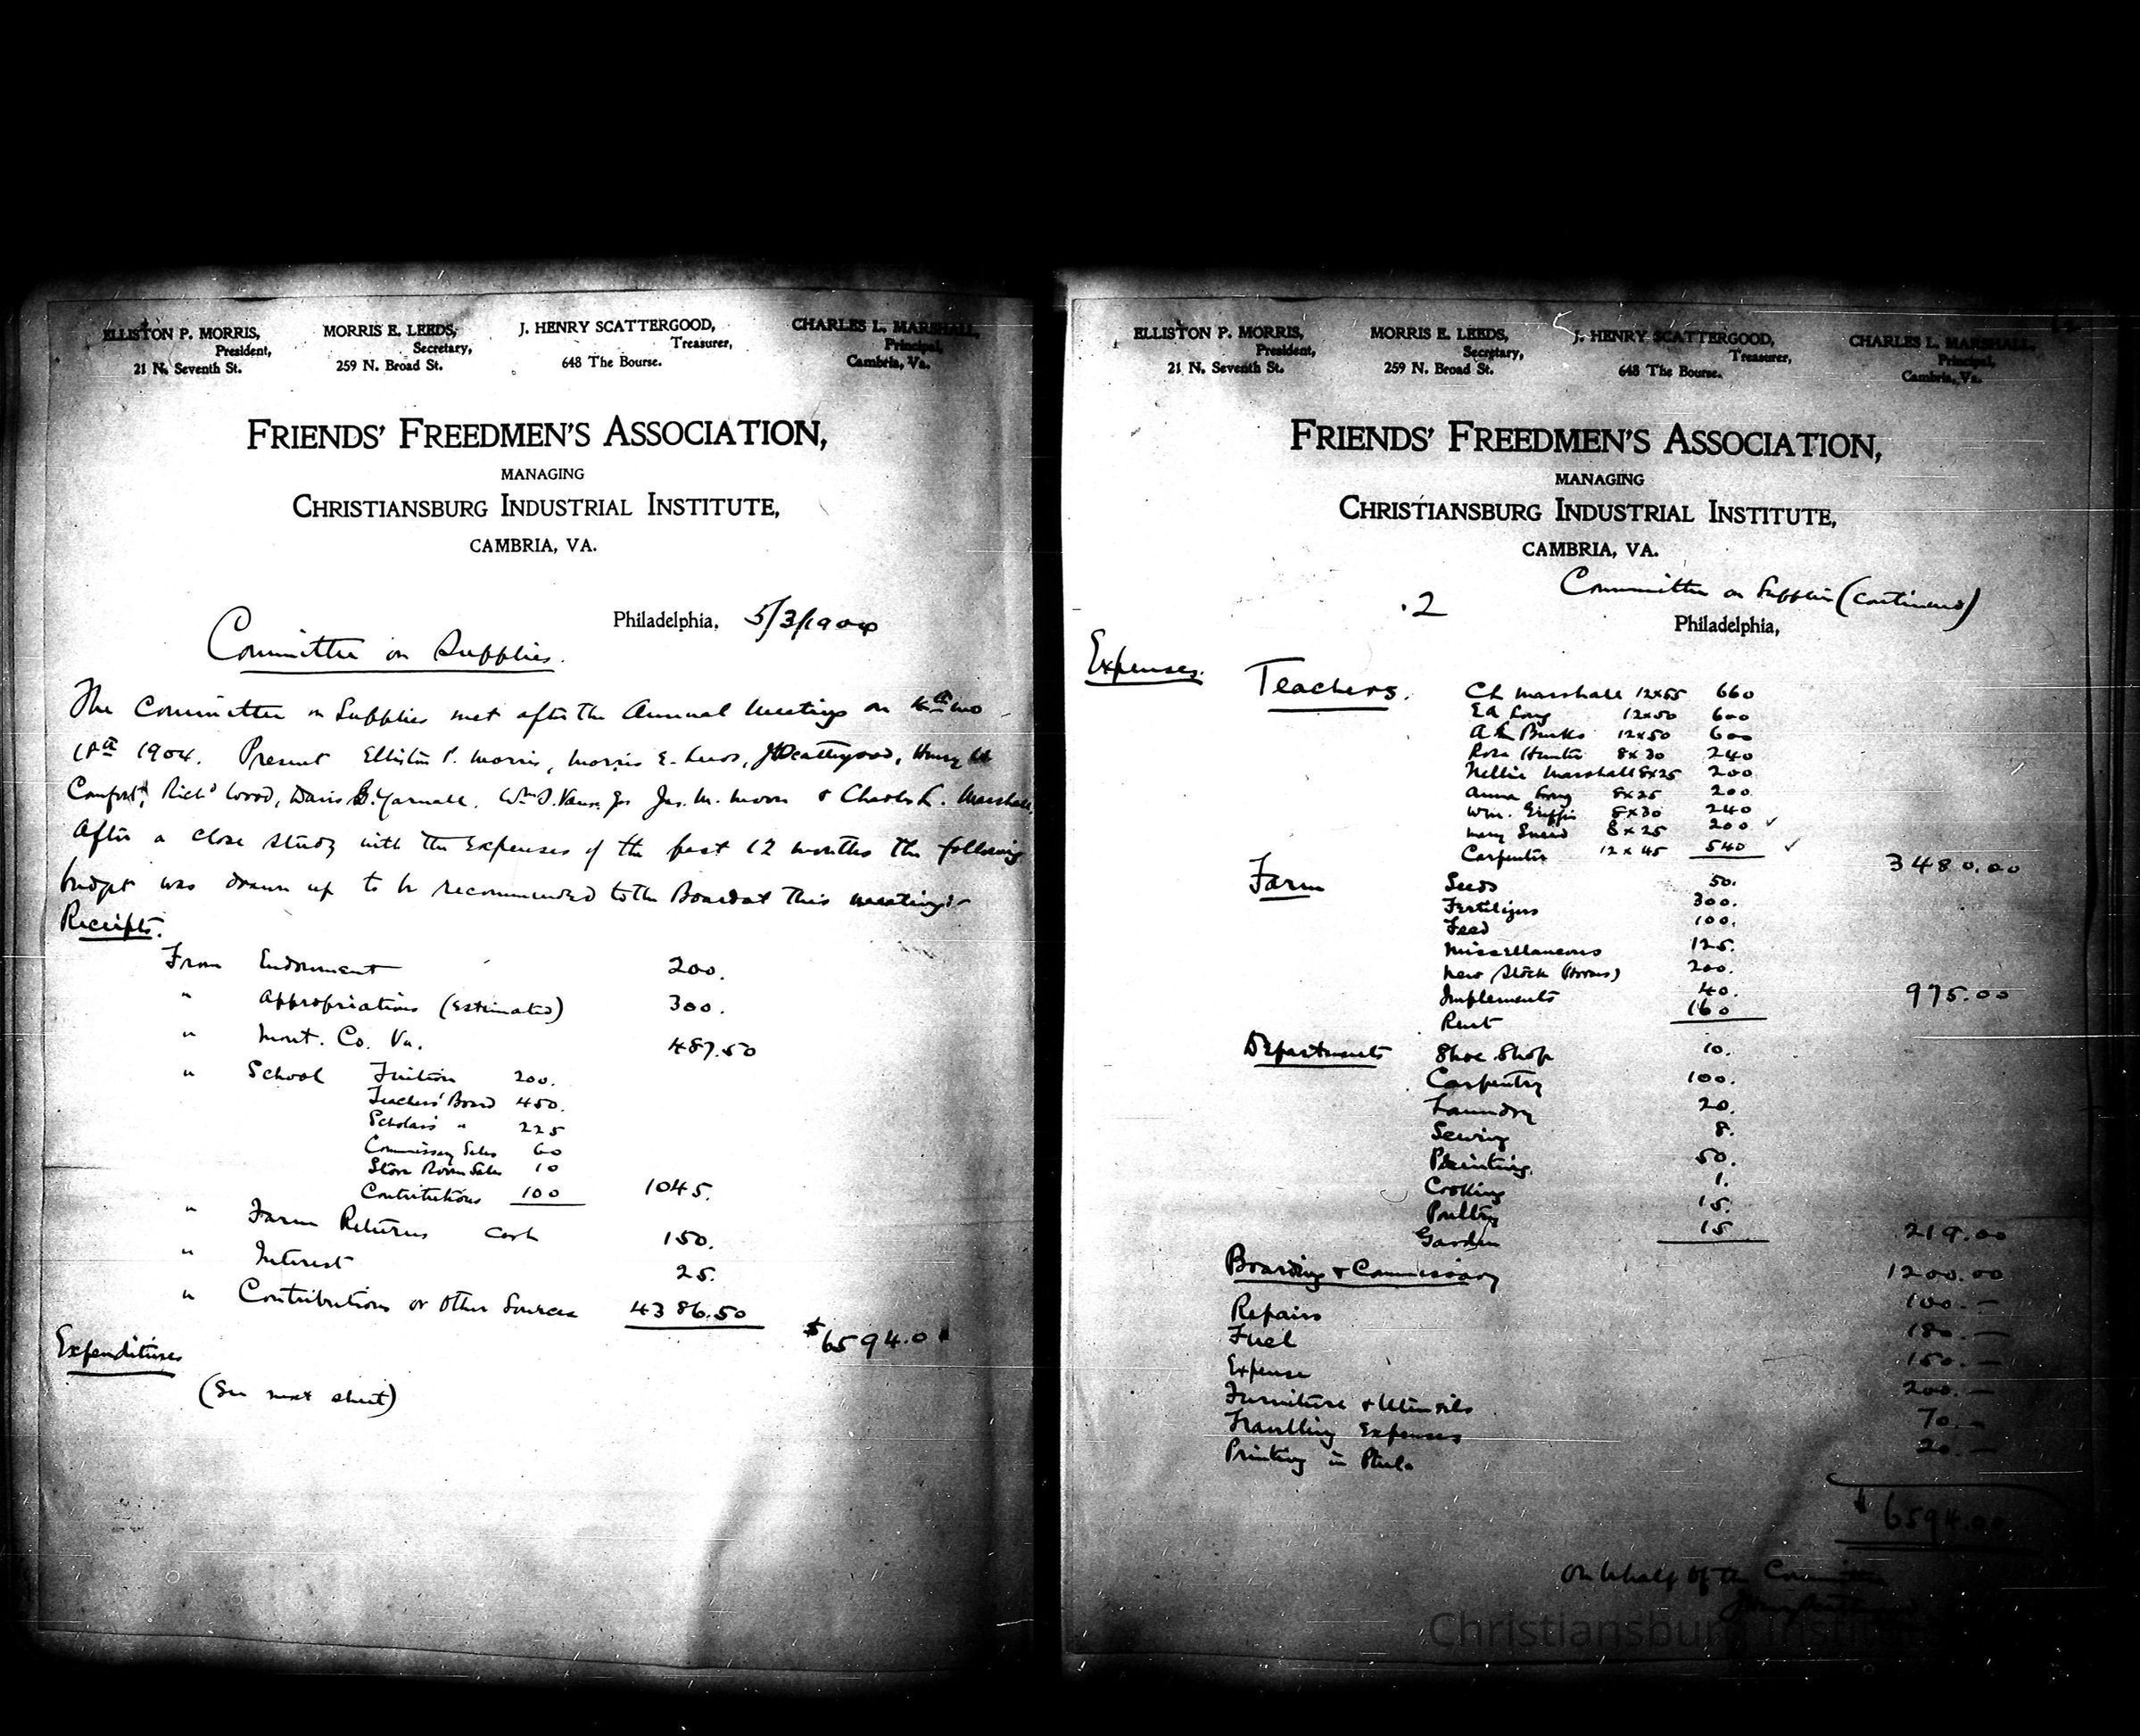 ELLISTON P. MORRIS,
President,
21 N. Seventh St.
MORRIS E. LEEDS,
Secretary,
259 N. Broad St.
J. HENRY SCATTERGOOD,
Treasurer,
648 The Bourse.
CHARLES L. MARSHALL,
Principal,
Cambria, Va.
FRIENDS' FREEDMEN'S ASSOCIATION,
MANAGING
CHRISTIANSBURG INDUSTRIAL INSTITUTE,
CAMBRIA, VA.
Philadelphia, 5/3/1904
Committee on Supplies.
The Committee on Supplies met after the Annual Meeting on 4th mo
18th 1904. Present Elliston P. Morris, Morris E. Leeds, JHScattergood, Henry W
Comfort, Richd Wood, Davis Yarnall, Wm S. Vaux Jr Jas. M. Moon & Charles L. Marshall.
After a close study with the Expenses of the past 12 months the following
budget was drawn up to be recommended to the Board at this meeting:-
Receipts.
From Endowment 200.
" Appropriations (Estimated) 300.
" Mont. Co. Va. 487.50
" School Tuition 200.
Teachers' Board 450.
Scholars " 225
Commissary Sales 60
Store Room Sales 10
Contributions 100 1045.
" Farm Returns cash 150.
" Interest 25.
" Contributions or Other Sources 4386.50
$6594.0
Expenditures
(See next sheet)
ELLISTON P. MORRIS,
President,
21 N. Seventh St.
MORRIS E. LEEDS,
Secretary,
259 N. Broad St.
J. HENRY SCATTERGOOD,
Treasurer,
648 The Bourse.
CHARLES L. MARSHALL,
Principal,
Cambria, Va.
FRIENDS' FREEDMEN'S ASSOCIATION,
MANAGING
CHRISTIANSBURG INDUSTRIAL INSTITUTE,
CAMBRIA, VA.
.2 Committee on Supplies (Continued)
Philadelphia,
Expenses. Teachers. CL Marshall 12x55 660
EA Long 12x50 600
A L Burks 12x50 600
Rosa Hunter 8x30 240
Nellie Marshall 8x25 200
Anna Long 8x25 200
Wm. Griffin 8x30 240
Mary Sneed 8x25 200 ✓
Carpenter 12x45 540 ✓
3480.00
Farm Seeds 50.
Fertilizers 300.
Feed 100.
Miscellaneous 125.
New Stock (Horses) 200.
Implements 40.
Rent 160
975.00
Departments Shoe Shop 10.
Carpentry 100.
Laundry 20.
Sewing 8.
Printing. 50.
Cooking 1.
Poultry 15.
Garden 15
219.00
Boarding & Commissary 1200.00
Repairs 100.—
Fuel 180.—
Expense 150.—
Furniture & Utensils 200.—
Travelling Expenses 70.—
Printing in Phila. 20.—
$6594.00
On behalf of the Committee
Christiansburg Institute